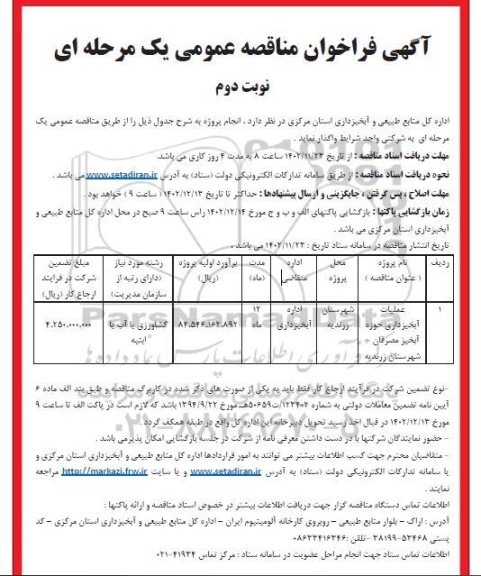 آگهی فراخوان مناقصه عمومی یک مرحله ای
نوبت دوم
اداره کل منابع طبیعی و آبخیزداری استان مرکزی در نظر دارد ، انجام پروژه به شرح جدول ذیل را از طریق مناقصه عمومی یک
مرحله ای به شرکتی واجد شرایط واگذار نماید .
مهلت دریافت اسناد مناقصه : از تاریخ ۱۴۰۲/۱۱/۲۳ ساعت ۸ به مدت ۴ روز کاری می باشد.
نحوه دریافت اسناد مناقصه : از طریق سامانه تدارکات الکترونیکی دولت (ستاد) به آدرس www.setadiran.ir می باشد .
مهلت اصلاح ، پس گرفتن ، جایگزینی و ارسال پیشنهادها : حداکثر تا تاریخ ۱۴۰۲/۱۲/۱۳ ( ساعت ۹ ) خواهد بود .
زمان بازگشایی پاکتها : بازگشایی پاکتهای الف و ب و ج مورخ ۱۴۰۲/۱۲/۱۴ راس ساعت ۹ صبح در محل اداره کل منابع طبیعی و
آبخیزداری استان مرکزی می باشد .
تاریخ انتشار مناقصه در سامانه ستاد تاریخ : ۱۴۰۲/۱۱/۲۳ می باشد .
ردیف نام پروژه ( عنوان مناقصه ) محل پروژه اداره متقاضی مدت (ماه) برآورد اولیه پروژه (ریال) رشته مورد نیاز (دارای رتبه از سازمان مدیریت) مبلغ تضمین شرکت در فرایند ارجاع کار (ریال)
۱ عملیات آبخیزداری حوزه آبخیز مصرقان - شهرستان زرندیه شهرستان زرندیه اداره آبخیزداری ۱۲ ماه ۸۴،۵۴۶،۱۶۲،۸۹۲ کشاورزی یا آب یا ابنیه ۴،۲۵۰،۰۰۰،۰۰۰
-نوع تضمین شرکت در فرآیند ارجاع کار فقط باید به یکی از صورت های ذکر شده در کاربرگ مناقصه و طبق بند الف ماده ۶
آیین نامه تضمین معاملات دولتی به شماره ۱۲۳۴۰۲/ت۵۰۶۵۹هـ مورخ ۱۳۹۴/۹/۲۲ باشد که لازم است در پاکت الف تا ساعت ۹
مورخ ۱۴۰۲/۱۲/۱۳ در قبال اخذ رسید تحویل دبیرخانه این اداره کل واقع در طبقه همکف گردد.
- حضور نمایندگان شرکتها با در دست داشتن معرفی نامه از شرکت در جلسه بازگشایی امکان پذیر می باشد .
- متقاضیان محترم جهت کسب اطلاعات بیشتر می توانند به امور قراردادها اداره کل منابع طبیعی و آبخیزداری استان مرکزی و
یا سامانه تدارکات الکترونیکی دولت (ستاد) به آدرس www.setadiran.ir و یا سایت http://markazi.frw.ir مراجعه
نمایند .
اطلاعات تماس دستگاه مناقصه گزار جهت دریافت اطلاعات بیشتر در خصوص اسناد مناقصه و ارائه پاکتها :
آدرس : اراک - بلوار منابع طبیعی - روبروی کارخانه آلومینیوم ایران - اداره کل منابع طبیعی و آبخیزداری استان مرکزی - کد
پستی ۵۳۴۶۸-۳۸۱۹۹ -تلفن :۰۸۶۳۳۴۱۶۳۴۶
اطلاعات تماس ستاد جهت انجام مراحل عضویت در سامانه ستاد : مرکز تماس ۴۱۹۳۴-۰۲۱